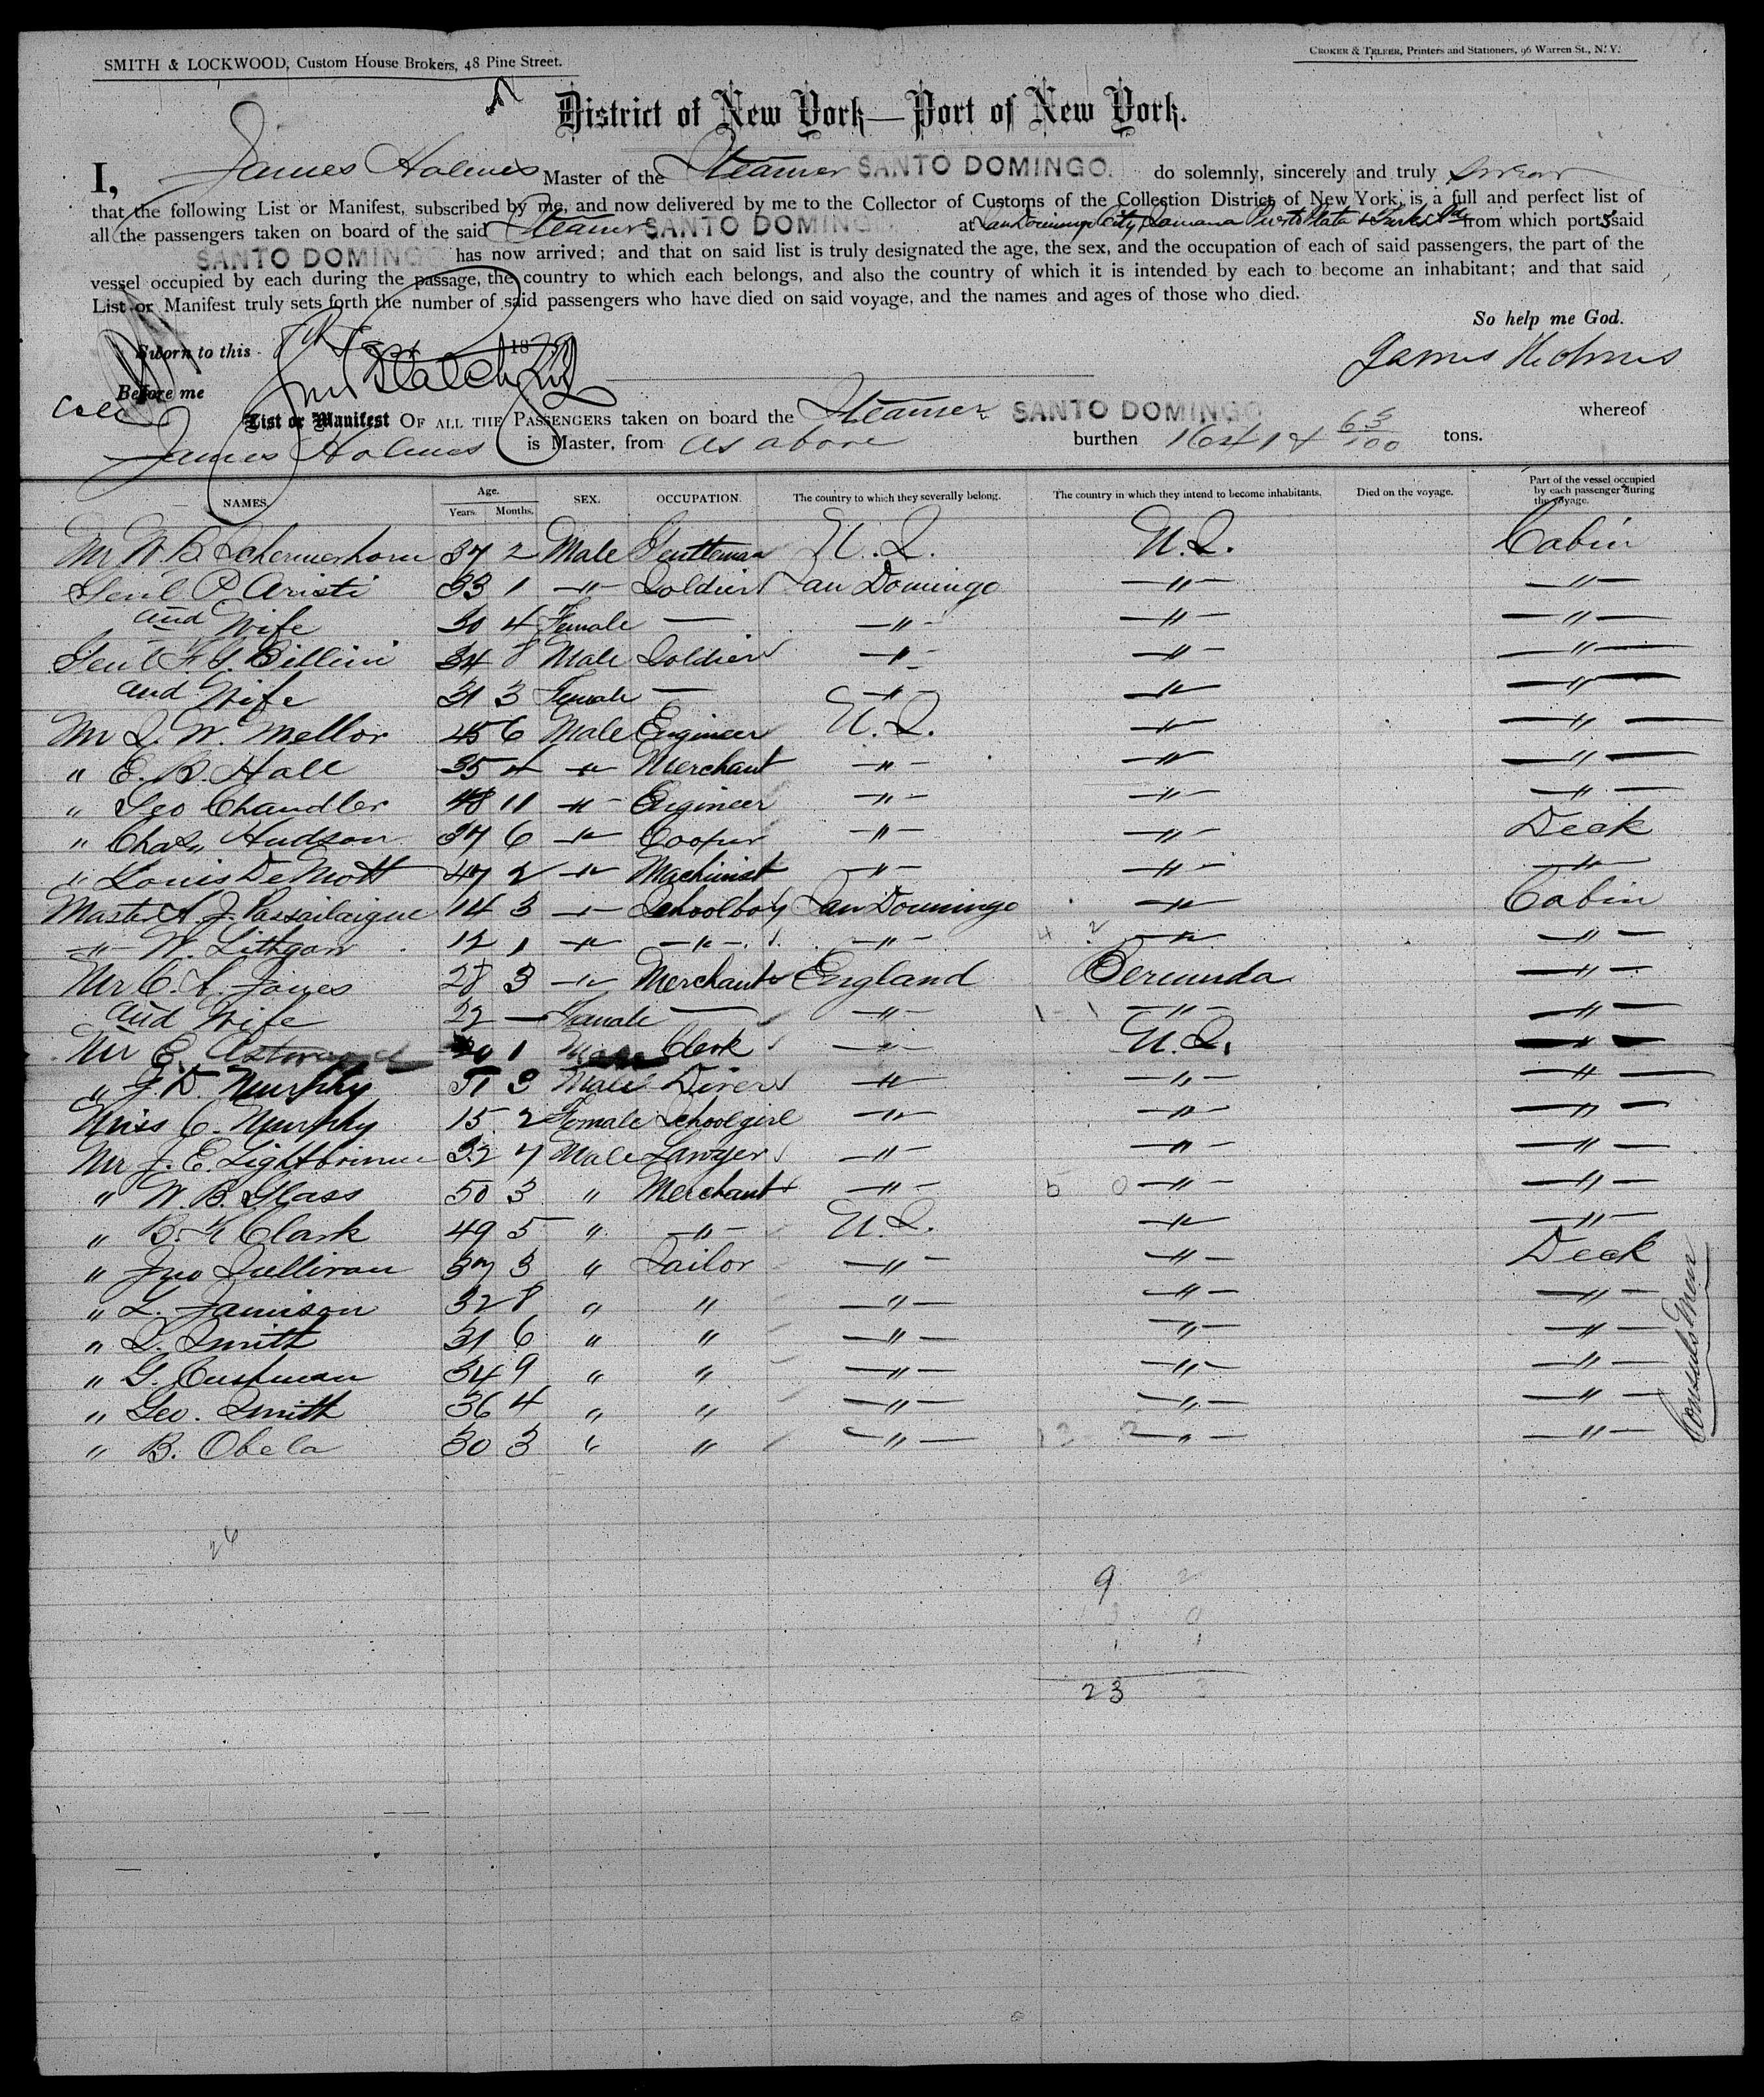 SMITH & LOCKWOOD, Custom House Brokers, 48 Pine Street.
CROKER & TELFER, Printers and Stationers, 96 Warren St., N. Y.
District of New York—Port of New York.
I, James Holmes Master of the Steamer SANTO DOMINGO. do solemnly, sincerely and truly swear
that the following List or Manifest, subscribed by me, and now delivered by me to the Collector of Customs of the Collection District of New York, is a full and perfect list of
all the passengers taken on board of the said Steamer SANTO DOMINGO at San Domingo City, Samana Puerto Plata & Turks Ild from which ports said
SANTO DOMINGO has now arrived; and that on said list is truly designated the age, the sex, and the occupation of each of said passengers, the part of the
vessel occupied by each during the passage, the country to which each belongs, and also the country of which it is intended by each to become an inhabitant; and that said
List or Manifest truly sets forth the number of said passengers who have died on said voyage, and the names and ages of those who died.
So help me God.
Sworn to this 187
James Holmes
Before me
List or Manifest OF ALL THE PASSENGERS taken on board the Steamer SANTO DOMINGO whereof
James Holmes is Master, from as above burthen 63/100 tons.
NAMES. Age. Years. Months. SEX. OCCUPATION. The country to which they severally belong. The country in which they intend to become inhabitants. Died on the voyage. Part of the vessel occupied by each passenger during the voyage.
Mr W. B Schermerhorn 37 2 Male Gentleman U. S. U. S. Cabin
Genl P. Aristi 33 1 —"— Soldier San Domingo —"— —"—
and Wife 30 4 Female — —"— —"— —"—
Genl F. G. Billini 34 8 Male Soldier —"— —"— —"—
and Wife 31 3 Female — —"— —"— —"—
Mr S. W. Mellor 45 6 Male Engineer U. S. —"— —"—
" E. B. Hall 35 4 —"— Merchant —"— —"— —"—
" Geo Chandler 48 11 —"— Engineer —"— —"— —"—
" Chas. Hudson 37 6 —"— Cooper —"— —"— Deck
" Louis De Mott 47 2 —"— Machinist —"— —"— —"—
Master A. J. Passailaigue 14 3 —"— Schoolboy San Domingo —"— Cabin
—"— W. Lithgow 12 1 —"— —"— —"— 4 2 —"— —"—
Mr C. A. Jones 28 3 —"— Merchant England Bermuda —"—
and Wife 22 — Female — —"— 1 - 1 —"— —"—
Mr E. 1 Male Clerk —"— U. S. —"—
" J. D. Murphy 51 3 Male Diver —"— —"— —"—
Miss C. Murphy 15 2 Female Schoolgirl —"— —"— —"—
Mr J. E. Lightbourne 32 7 Male Lawyer —"— —"— —"—
" W. B. Glass 50 3 " Merchant —"— 5 0 —"— —"—
" B. F. Clark 49 5 " —"— U. S. —"— —"—
" Jno Sullivan 37 3 " Sailor —"— —"— Deck
" L. Jamison 32 8 " " —"— —"— —"—
" S. Smith 31 6 " " —"— —"— —"—
" G. Cushman 34 9 " " —"— —"— —"—
" Geo. Smith 36 4 " " —"— —"— —"—
" B. Obela 30 3 " " —"— 13 2 —"— —"—
Consuls Men
26
9 2
3 0
1 1
23 3